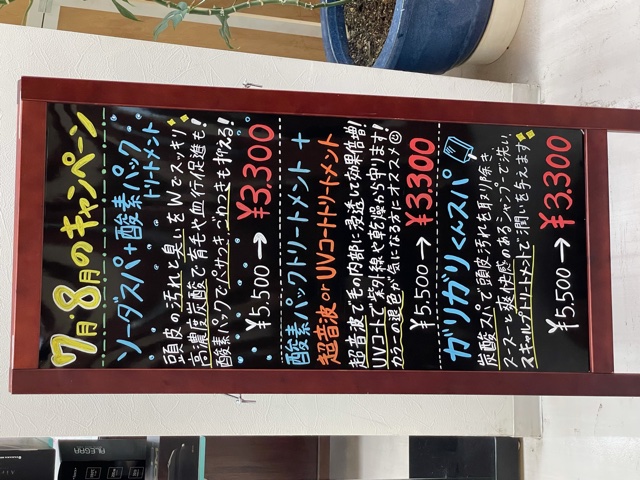 7月・8月のキャンペーン
ソーダスパ+酸素パック
トリートメント
頭皮の汚れと臭いをWでスッキリ
高濃度炭酸で育毛や血行促進も!
酸素パックでパサつき・ごわつきも抑える!
¥5,500→¥3,300
酸素パックトリートメント+
超音波 or UVコートトリートメント
超音波で毛の内部に浸透して効果倍増!
UVコートで紫外線や乾燥から守ります!
カラーの退色が気になる方にオススメ
¥5,500→¥3,300
ガリガリくんスパ
炭酸スパで頭皮汚れを取り除き
スースーと爽快感のあるシャンプーで洗い、
スキャルプトリートメントで潤いを与えます
¥5,500→¥3,300
ALEGRA